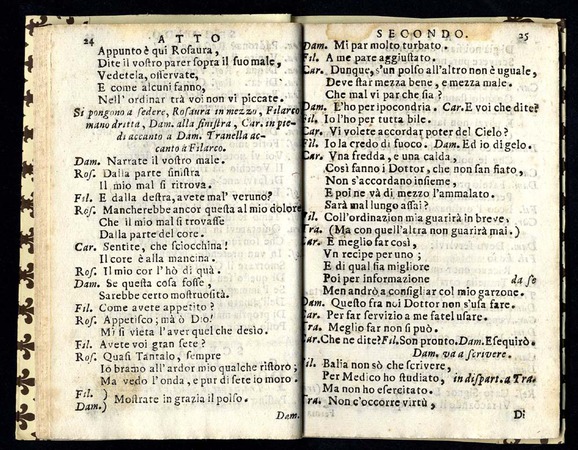 24 ATTO
Appunto è qui Rosaura,
Dite il vostro parer sopra il suo male,
Vedetela, osservate,
E come alcuni fanno,
Nell' ordinar trà voi non vi piccate.
Si pongono a sedere, Rosaura in mezzo, Filarco
mano dritta, Dam. alla sinistra, Car. in pie-
di accanto a Dam. Tranella ac-
canto à Filarco.
Dam. Narrate il vostro male.
Ros. Dalla parte sinistra
Il mio mal si ritrova.
Fil. E dalla destra, avete mal' veruno?
Ros. Mancherebbe ancor questa al mio dolore
Che il mio mal si trovasse
Dalla parte del core.
Car. Sentite, che sciocchina!
Il core è alla mancina.
Ros. Il mio cor l'hò di quà.
Dam. Se questa cosa fosse,
Sarebbe certo mostruosità.
Fil. Come avete appetito?
Ros. Appetisco; mà ò Dio!
Mi si vieta l'aver quel che desio.
Fil. Avete voi gran sete?
Ros. Quasi Tantalo, sempre
Io bramo all'ardor mio qualche ristoro;
Ma vedo l'onda, e pur di sete io moro.
Fil. )
Dam.) Mostrate in grazia il polso.
Dam.
SECONDO. 25
Dam. Mi par molto turbato.
Fil. A me pare aggiustato.
Car. Dunque, s'un polso all'altro non è uguale,
Deve star mezza bene, e mezza male.
Che mal vi par che sia?
Dam. L'ho per ipocondria. Car. E voi che dite?
Fil. Io l'ho per tutta bile.
Car. Vi volete accordar poter del Cielo?
Fil. Io la credo di fuoco. Dam. Ed io di gelo.
Car. Vna fredda, e una calda,
Così fanno i Dottor, che non san fiato,
Non s'accordano insieme,
E poi ne và di mezzo l'ammalato.
Sarà mal lungo assai?
Fil. Coll'ordinazion mia guarirà in breve,
Tra. (Ma con quell'altra non guarirà mai.)
Car. E meglio far così,
Vn recipe per uno;
E di qual sia migliore
Poi per informazione da se
Men andrò a consigliar col mio garzone.
Dam. Questo fra noi Dottor non s'usa fare.
Car. Per far servizio a me fatel usare.
Tra. Meglio far non si può.
Car. Che ne dite? Fil. Son pronto. Dam. Eseguirò.
Dam. va a scrivere.
Fil. Balia non sò che scrivere,
Per Medico ho studiato, in dispart. a Tra.
Ma non ho esercitato.
Tra. Non c'occorre virtù,
Di